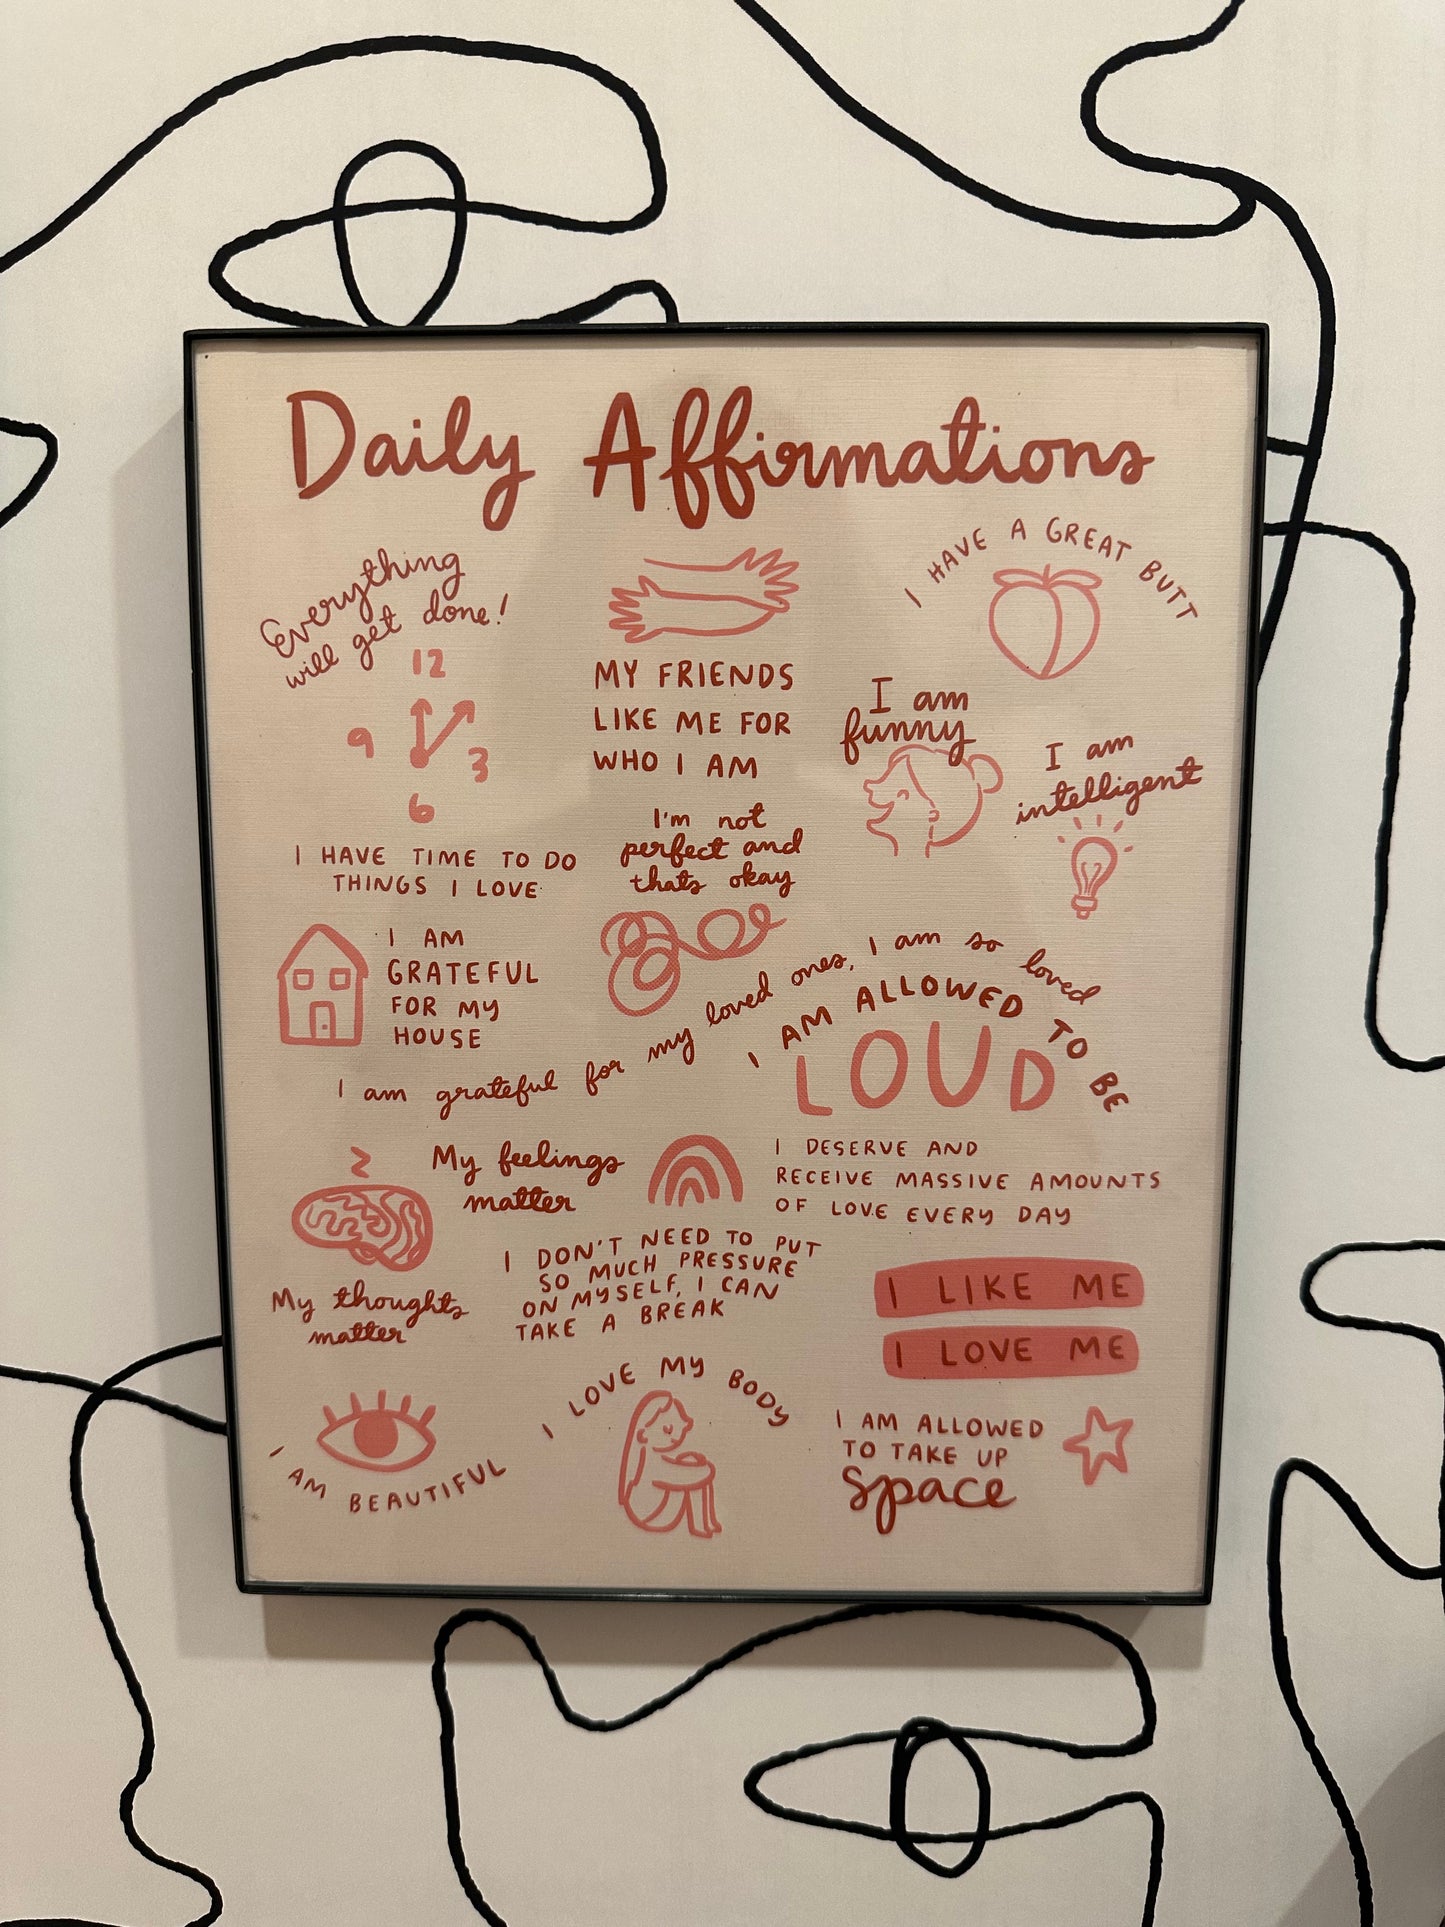 Daily Affirmations
Everything
will get done!
12
9
3
6
I HAVE TIME TO DO
THINGS I LOVE
MY FRIENDS
LIKE ME FOR
WHO I AM
I HAVE A GREAT BUTT
I am
funny
I am
intelligent
I'm not
perfect and
thats okay
I AM
GRATEFUL
FOR MY
HOUSE
I am grateful for my loved ones, I am so loved
I AM ALLOWED TO BE
LOUD
My feelings
matter
I DESERVE AND
RECEIVE MASSIVE AMOUNTS
OF LOVE EVERY DAY
My thoughts
matter
I DON'T NEED TO PUT
SO MUCH PRESSURE
ON MYSELF, I CAN
TAKE A BREAK
I LIKE ME
I LOVE ME
I AM BEAUTIFUL
I LOVE MY BODY
I AM ALLOWED
TO TAKE UP
space